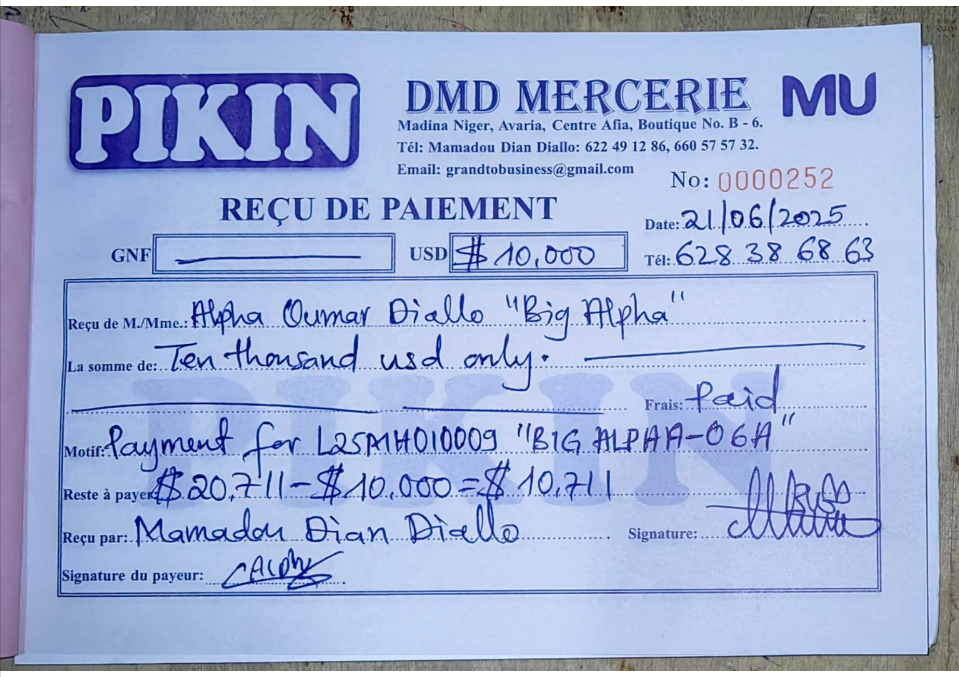 PIKIN
DMD MERCERIE MU
Madina Niger, Avaria, Centre Afia, Boutique No. B - 6.
Tél: Mamadou Dian Diallo: 622 49 12 86, 660 57 57 32.
Email: grandtobusiness@gmail.com
No: 0000252
REÇU DE PAIEMENT
Date: 21/06/2025
GNF USD $ 10,000 Tél: 628 38 68 63
Reçu de M./Mme.: Alpha Oumar Diallo "Big Alpha"
La somme de: Ten thousand usd only.
Frais: Paid
Motif: Payment for L25A1H010009 "BIG ALPAA-06A"
Reste à payer $ 20,711-$ 10,000=$ 10,711
Reçu par: Mamadou Dian Diallo Signature:
Signature du payeur: Alpha
PIKIN